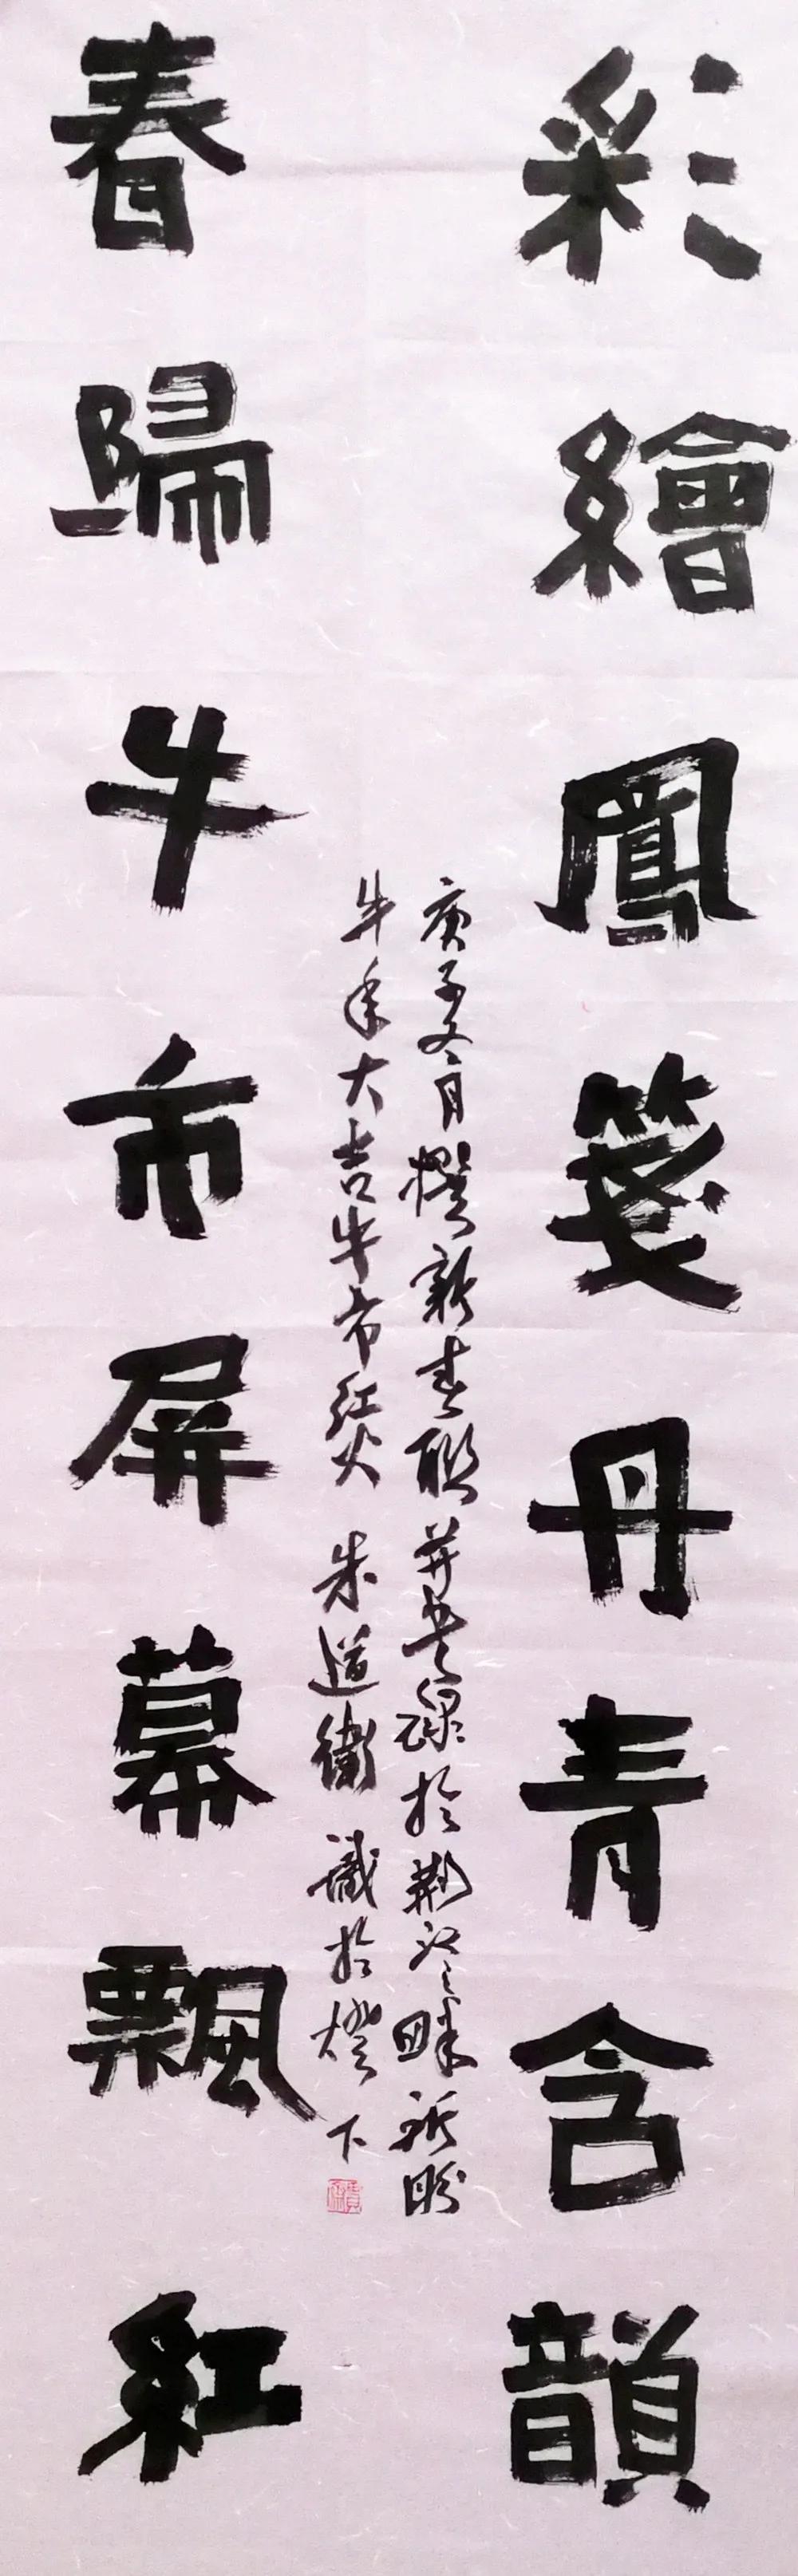 彩繪鳳箋丹青含韻
庚子冬月撰新春聯并書録於荆江之畔祈盼
牛年大吉牛市红火 朱道衛 識於燈下
春歸牛市屏幕飄紅